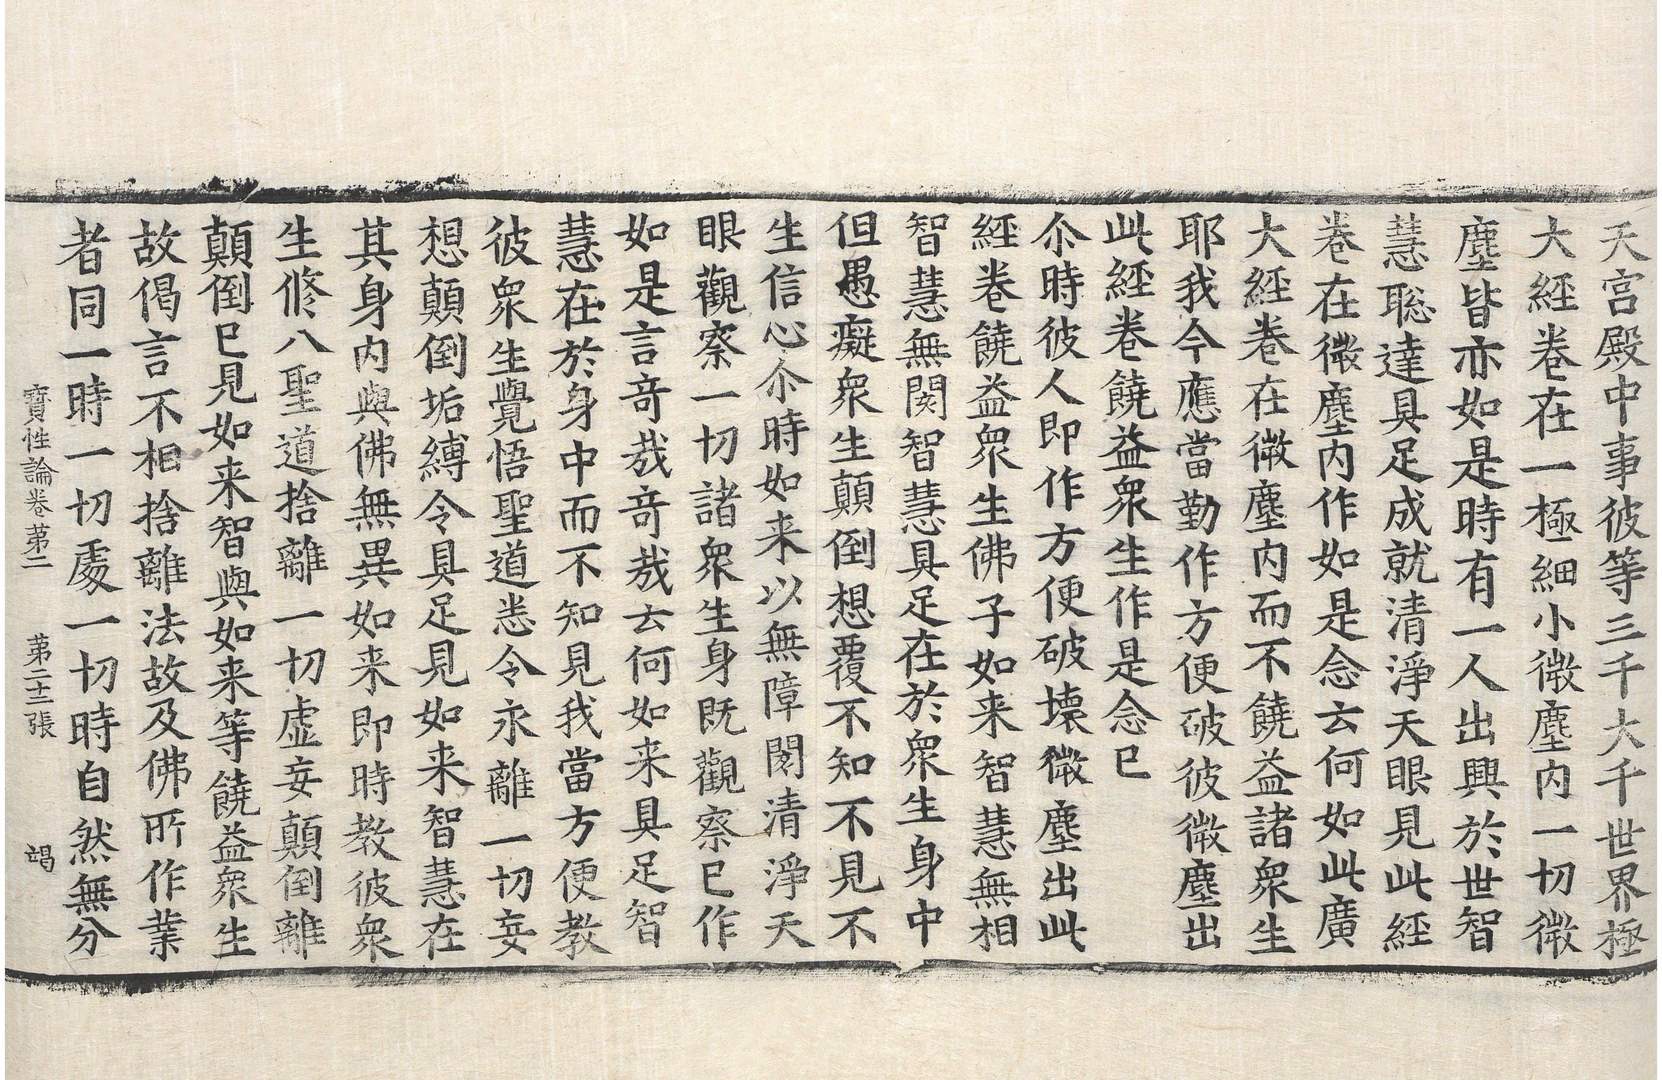 天宮殿中事彼等三千大千世界極
大經卷在一極細小微塵内一切微
塵皆亦如是時有一人出興於世智
慧聡達具足成就清淨天眼見此經
卷在微塵内作如是念云何如此廣
大經卷在微塵内而不饒益諸衆生
耶我今應當勤作方便破彼微塵出
此經卷饒益衆生作是念已
尒時彼人即作方便破壞微塵出此
經卷饒益衆生佛子如来智慧無相
智慧無閡智慧具足在於衆生身中
但愚癡衆生顛倒想覆不知不見不
生信心尒時如来以無障閡清淨天
眼觀察一切諸衆生身既觀察已作
如是言竒㢤竒㢤云何如来具足智
慧在於身中而不知見我當方便教
彼衆生覺悟聖道悉令永離一切妄
想顛倒垢縛令具足見如来智慧在
其身内與佛無異如来即時教彼衆
生修八聖道捨離一切虚妄顛倒離
顛倒已見如来智與如来等饒益衆生
故偈言不相捨離法故及佛所作業
者同一時一切處一切時自然無分
寶性論卷第二 第二十二張 竭